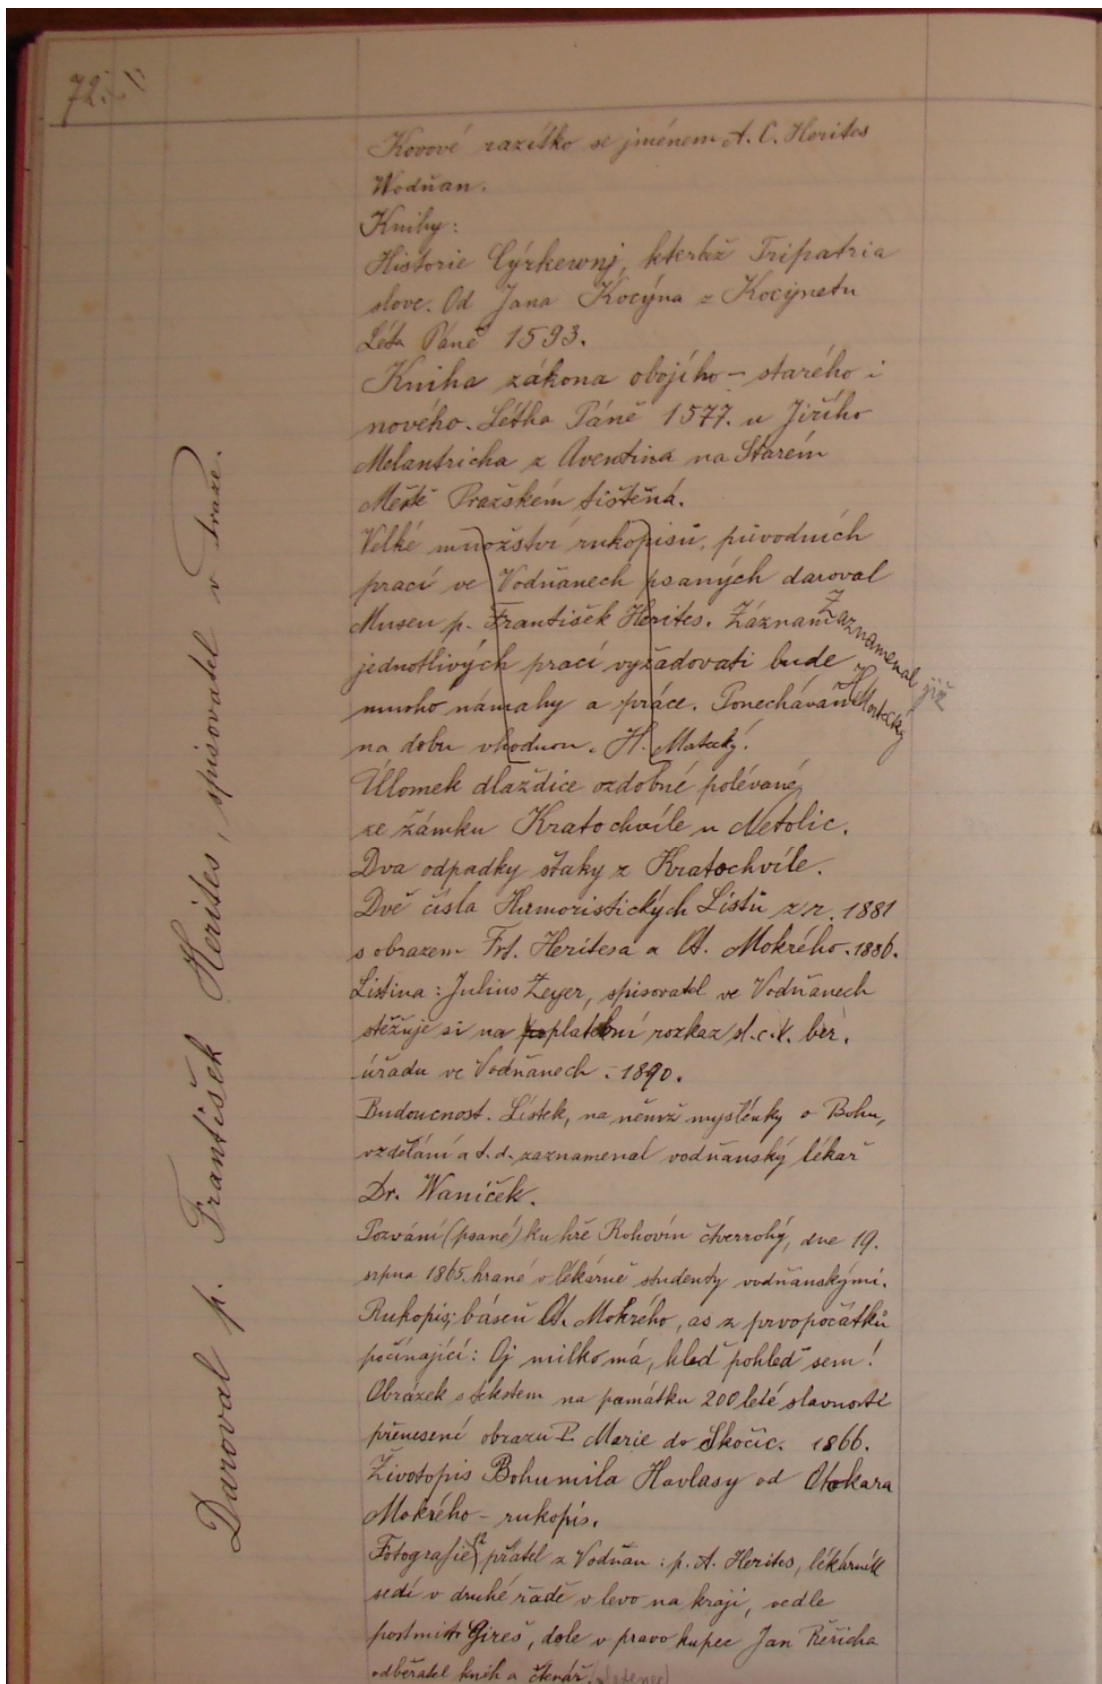 72.
Kovové razítko se jménem A. C. Herites
Wodňan.
Knihy:
Historie Cýrkewnj, kterúž Tripatria
slove. Od Jana Kocýna z Kocýnetu
Léta Páně 1593.
Kniha zákona obojího – starého i
nového. Létha Páně 1577. u Jiřího
Melantricha z Aventina na Starém
Městě Pražském tištěná.
Velké množství rukopisů, původních
prací ve Vodňanech psaných daroval
Museu p. František Herites. Záznam
jednotlivých prací vyžadovati bude
mnoho námahy a práce. Ponechávám
na dobu vhodnou. H. Matecký.
Zaznamenal již
H. Mostecký
Úllomek dlaždice ozdobné polévané
ze zámku Kratochvíle u Netolic.
Dva odpadky štuky z Kratochvíle.
Dvě čísla Humoristických Listů z r. 1881
s obrazem Frt. Heritesa a Ot. Mokrého. 1886.
Listina: Julius Zeyer, spisovatel ve Vodňanech
stěžuje si na platební rozkaz sl. c. k. ber.
úřadu ve Vodňanech. 1890.
Budoucnost. Lístek, na němž myslénky o Bohu,
vzdělání a t. d. zaznamenal vodňanský lékař
Dr. Waníček.
Pozvání (psané) ku hře Rohovín čtverrohý, dne 19.
srpna 1865. hrané v lékárně studenty vodňanskými.
Rukopis; báseň Ot. Mokrého, as z prvopočátků
počínající: Oj milko má, hleď pohleď sem!
Obrázek s tékstem na památku 200 leté slavnosti
přenesení obrazu P. Marie do Skočic. 1866.
Životopis Bohumila Havlasy od Otokara
Mokrého – rukopis.
Fotografie 12 přátel z Vodňan: p. A. Herites, lékárník
sedí v druhé řadě v levo na kraji, vedle
postmistr Gireš, dole v pravo kupec Jan Řeřicha
odběratel knih a čtenář.
Daroval p. František Herites, spisovatel v Praze.